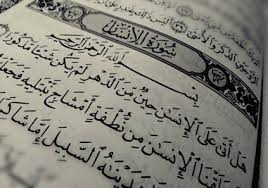 الذكر والأنثى
سُورَةُ الإِنسَانِ
بِسْمِ اللَّهِ الرَّحْمَٰنِ الرَّحِيمِ
هَلْ أَتَىٰ عَلَى الْإِنسَٰنِ حِينٌ مِّنَ الدَّهْرِ لَمْ يَكُن شَيْئًا مَّذْكُورًا
خَلَقْنَا الْإِنسَٰنَ مِن نُّطْفَةٍ أَمْشَاجٍ نَّبْتَلِيهِ فَجَعَلْنَٰ
هَدَيْنَٰهُ السَّبِيلَ إِمَّا شَاكِرًا